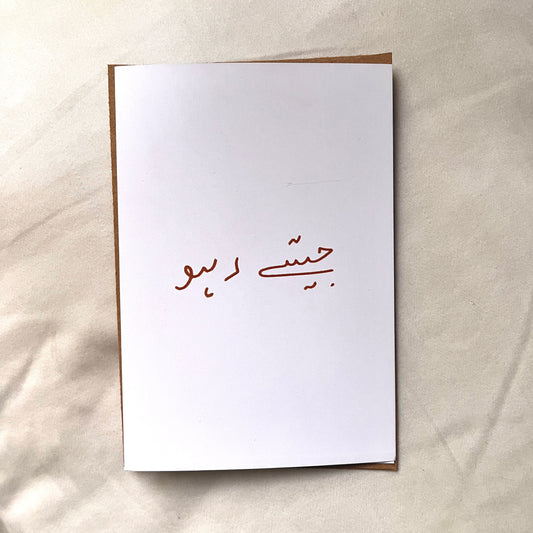 جیتے رہو